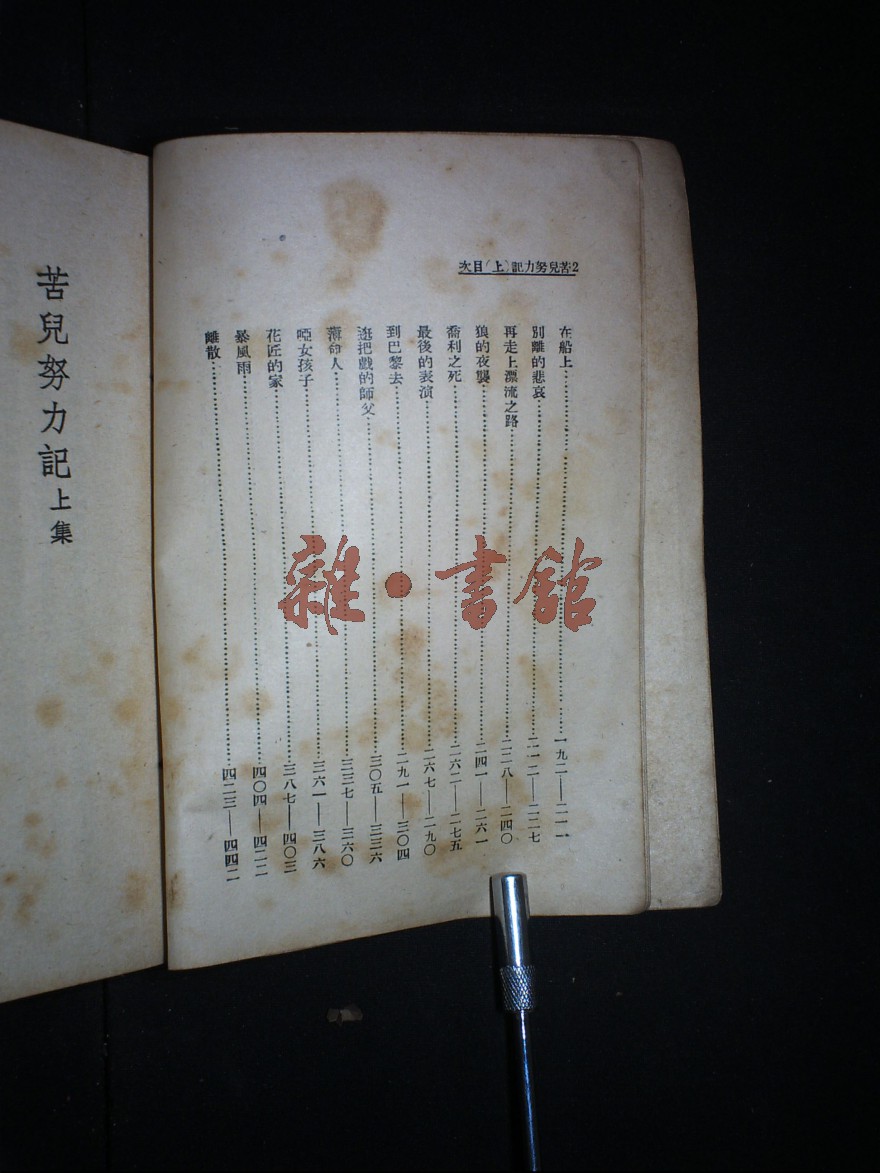 2苦兒努力記(上)目次
在船上……一九二——二一一
別離的悲哀……二一二——二二七
再走上漂流之路……二二八——二四〇
狼的夜襲……二四一——二六一
喬利之死……二六二——二七五
最後的表演……二六七——二九〇
到巴黎去……二九一——三〇四
逛把戲的師父……三〇五——三三六
薄命人……三三七——三六〇
啞女孩子……三六一——三八六
花匠的家……三八七——四〇三
暴風雨……四〇四——四二二
離散……四二三——四四二
苦兒努力記上集
雜·書館